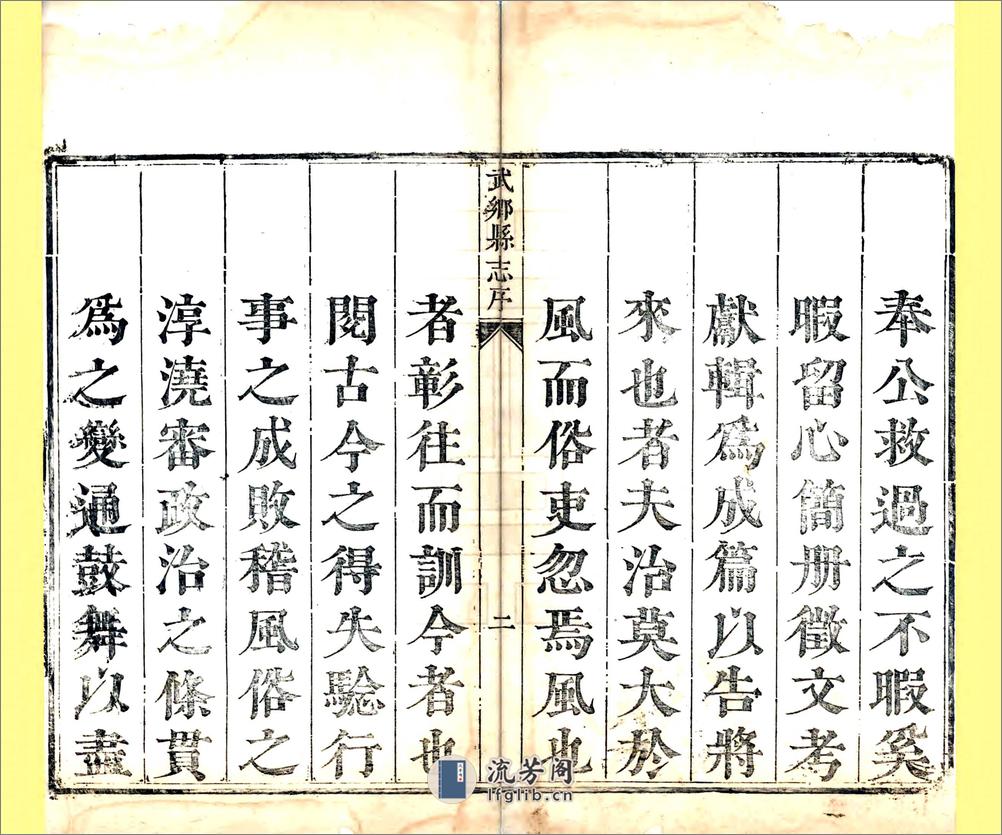 奉公救過之不暇奚
暇留心簡册徵文考
獻輯爲成篇以告將
來也者夫治莫大於
風而俗吏忽焉風也
武鄉縣志序
二
者彰往而訓今者也
閱古今之得失驗行
事之成敗稽風俗之
淳澆審政治之條貫
爲之變通鼓舞以盡
流芳阁
lfglib.cn